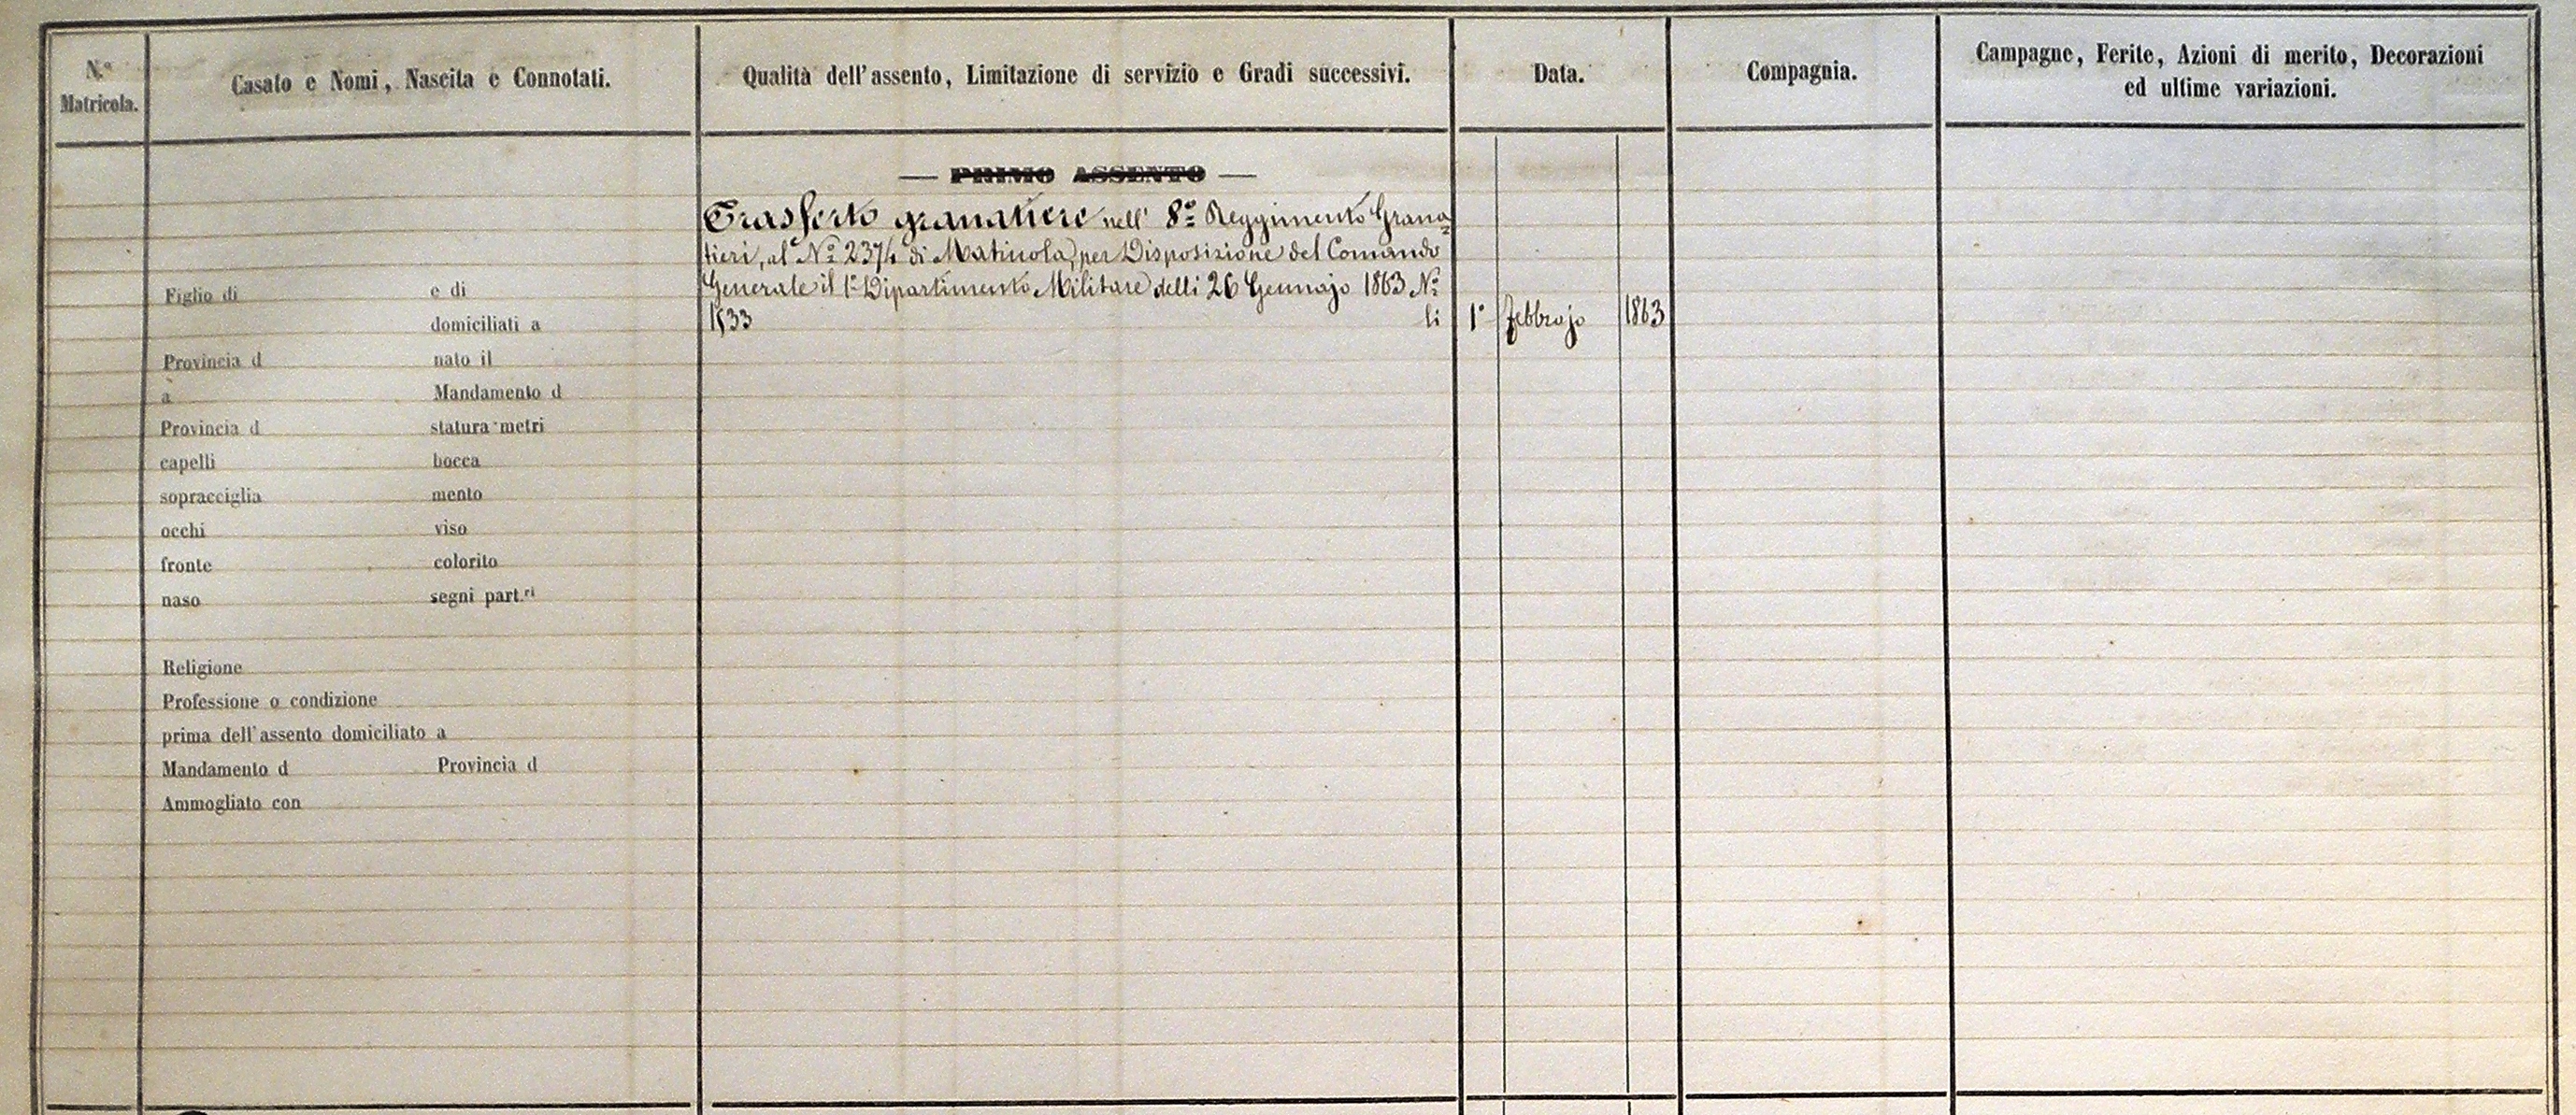 N.º
Matricola.
Casato e Nomi, Nascita e Connotati.
Qualità dell'assento, Limitazione di servizio e Gradi successivi.
Data.
Compagnia.
Campagne, Ferite, Azioni di merito, Decorazioni
ed ultime variazioni.
— PRIMO ASSENTO —
Trasferto granatiere nell' 8º Reggimento Grana=
tieri, al Nº 2374 di Matricola, per Disposizione del Comando
Generale il 1º Dipartimento Militare delli 26 Gennajo 1863 Nº
1533 li 1º Febbrajo 1863
Figlio di e di
domiciliati a
Provincia d nato il
a Mandamento d
Provincia d statura metri
capelli bocca
sopracciglia mento
occhi viso
fronte colorito
naso segni part.ri
Religione
Professione o condizione
prima dell'assento domiciliato a
Mandamento d Provincia d
Ammogliato con